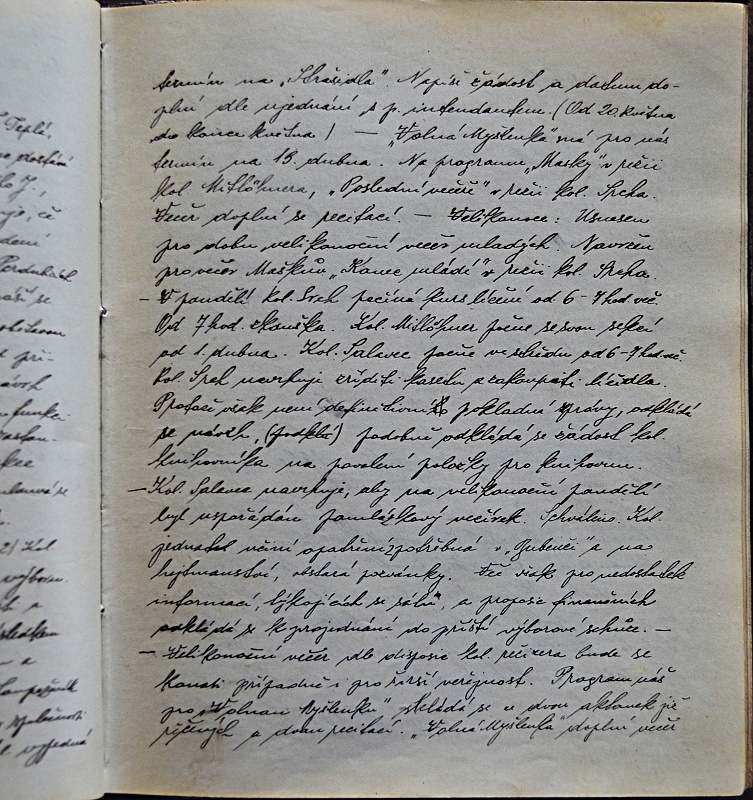 Teplé,
termín na „Strašidla". Napíši žádost a datum do-
plní dle ujednání s p. intendantem. (Od 20. května
do konce května) — „Volná Myšlenka" má pro nás
termín na 19. dubna. Na programu „Masky" v režii
kol. Mitlöhnera, „Poslední večeře" v režii kol. Srcha.
Večer doplní se recitací. — Velikonoce: Usnesen
pro dobu velikonoční večer mladých. Navržen
pro večer Maškův „Konec mládí" v režii kol. Srcha.
— V pondělí kol. Srch počíná kurs líčení od 6-7 hod več.
Od 7 hod. zkouška. Kol. Mitlöhner počne se svou sekcí
od 1. dubna. Kol. Salavec počne ve středu od 6-7 hod. več.
Kol. Srch navrhuje zříditi kasetu a zakoupiti líčidla.
Protože však není definitivní pokladní zprávy, odkládá
se návrh, podobně odkládá se žádost kol.
knihovníka na povolení položky pro knihovnu.
— Kol. Salavec navrhuje, aby na velikonoční pondělí
byl uspořádán pomlázkový večírek. Schváleno. Kol.
jednatel učiní opatření potřebná v „Bubenči" a na
hejtmanství, obstará pozvánky. Věc však pro nedostatek
informací, týkajících se sálu, a propose finančních
odkládá se k projednání do příští výborové schůze. —
— Velikonoční večer dle disposic kol. režisera bude se
konati případně i pro širší veřejnost. Program náš
pro „Volnou Myšlenku" skládá se z dvou aktovek již
řečených a dvou recitací. „Volná Myšlenka" doplní večer